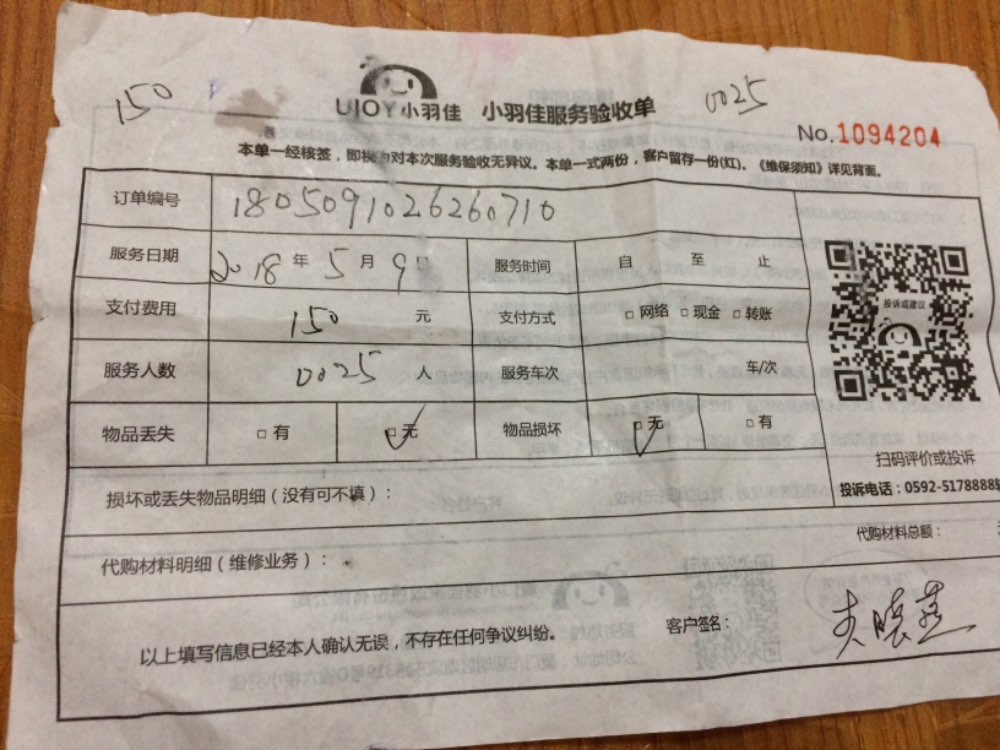 150
UJOY小羽佳 小羽佳服务验收单
0025
No.1094204
本单一经核签，即视为对本次服务验收无异议。本单一式两份，客户留存一份(红)。《维保须知》详见背面。
订单编号 1805091026260710
服务日期 2018年5月9日 服务时间 自 至 止
支付费用 150 元 支付方式 □网络 □现金 □转账
投诉或建议
服务人数 0025 人 服务车次 车/次
物品丢失 □有 □无 物品损坏 □无 □有
扫码评价或投诉
损坏或丢失物品明细（没有可不填）：
投诉电话：0592-5178888
代购材料总额：
代购材料明细（维修业务）：
客户签名：
以上填写信息已经本人确认无误，不存在任何争议纠纷。